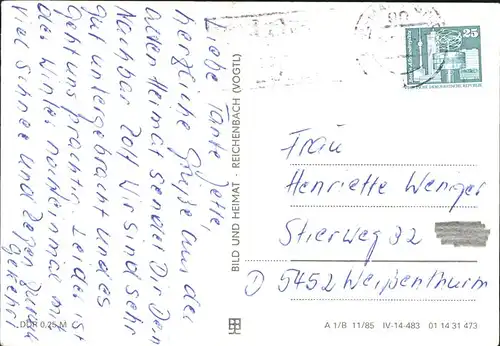 Liebe Tante Jette,
herzliche Grüße aus der
alten Heimat sendet Dir Dein
Nachbar Rolf. Wir sind sehr
gut untergebracht und es
geht uns prächtig. Leider ist
der Winter noch einmal mit
viel Schnee und Regen zurück
gekehrt
DDR 0,25 M
BILD UND HEIMAT · REICHENBACH (VOGTL)
25
DEUTSCHE DEMOKRATISCHE REPUBLIK
Frau
Henriette Weniger
Stierweg 32
D 5452 Weißenthurm
A 1/B 11/85 IV-14-483 01 14 31 473